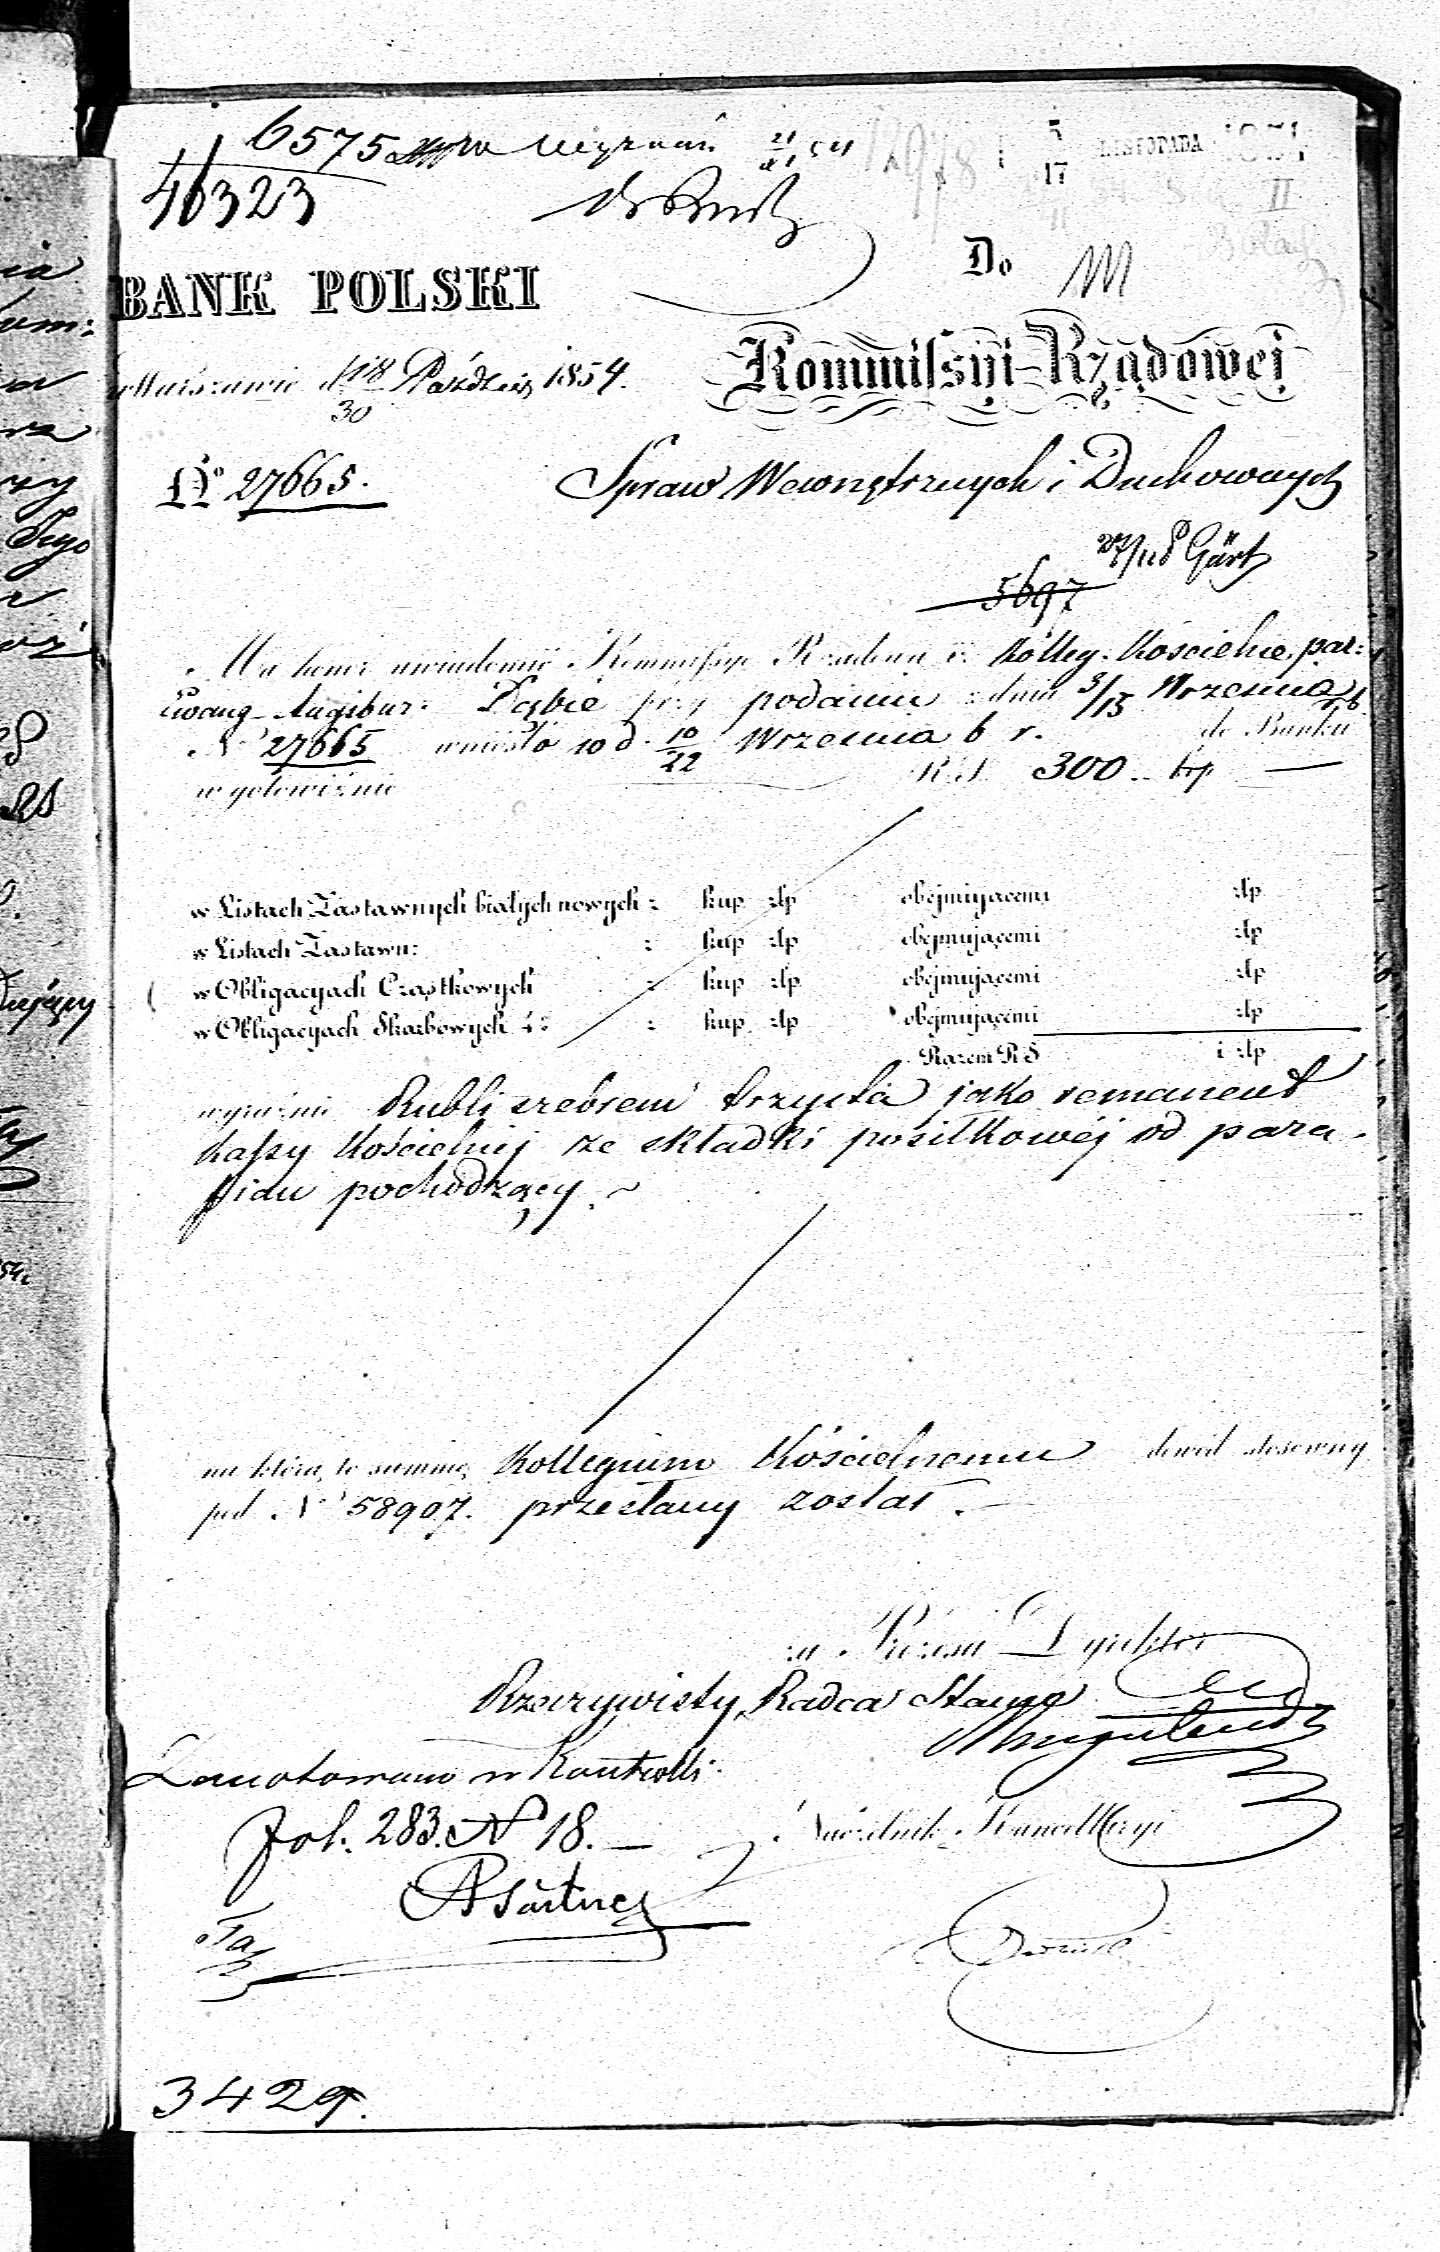 6575
46323
5
17
LISTOPADA
II
Do
BANK POLSKI
Kommissyi Rządowej
w Warszawie d 18/30 Paździer 1854.
No 27665.
Spraw Wewnętrznych i Duchownych
5697
Ma honor uwiadomić Kommissyę Rządową iż Kolleg: Kościelne par:
Ewang-Augsbur: Dąbie przy podaniu z dnia 3/15 Września r b
No 27665 wniosło do d. 10/22 Września b r. do Banku
w gotowiźnie R.S. 300 . kop —
w Listach Zastawnych białych nowych : kup złp obejmującemi złp
w Listach Zastawn: : kup złp obejmującemi złp
w Obligacyach Cząstkowych : kup złp obejmującemi złp
w Obligacyach Skarbowych : kup złp obejmującemi złp
Razem R S i złp
wyraźnie Rubli srebrem trzysta jako remanent
kassy Kościelnej ze składki posiłkowéj od para-
fian pochodzący. ~
na którą to summę Kollegium Kościelnemu dowód stosowny
pod No 58907. przesłany został. —
za Prezesa Dyrektor
Rzeczywisty Radca Stanu
Zanotowano w Kontrolli
fol. 283. No 18. —
Naczelnik Kancellaryi
3429.